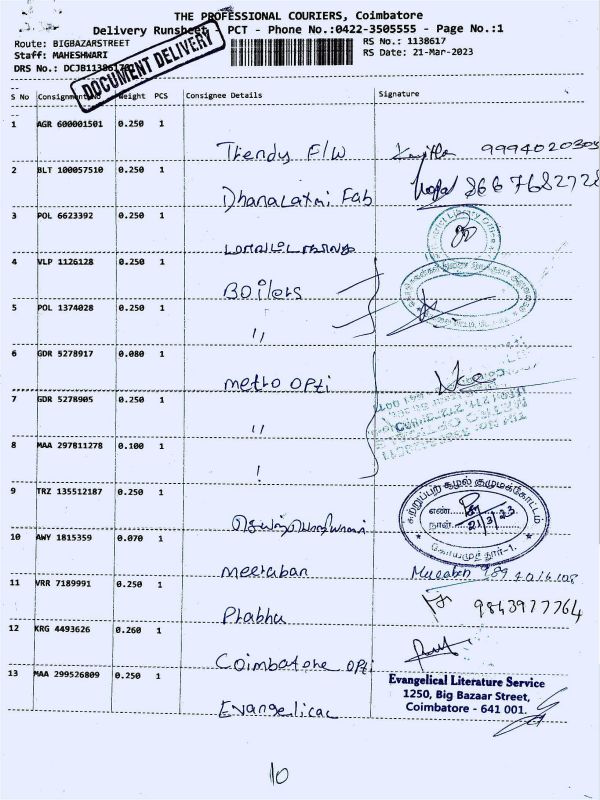 THE PROFESSIONAL COURIERS, Coimbatore
Delivery Runsheet - PCT - Phone No.:0422-3505555 - Page No.:1
Route: BIGBAZARSTREET
RS No.: 1138617
Staff: MAHESHWARI
RS Date: 21-Mar-2023
DRS No.: DCJB1138617
DOCUMENT DELIVERY
S No Consignment No Weight PCS Consignee Details Signature
1 AGR 600001501 0.250 1
Trendy F/W 9994020305
2 BLT 100057510 0.250 1
Dhanalaxmi Fab 866 7682728
3 POL 6623392 0.250 1
4 VLP 1126128 0.250 1
Boilers
5 POL 1374028 0.250 1
"
6 GDR 5278917 0.080 1
metro opti
7 GDR 5278905 0.250 1
"
8 MAA 297811278 0.100 1
9 TRZ 135512187 0.250 1
சுற்றுப்புற சூழல்
எண்.
நாள். 21/3/23
கோயமுத்தூர்-1.
10 AWY 1815359 0.070 1
meeraban
11 VRR 7189991 0.250 1
Prabhu 9843977764
12 KRG 4493626 0.260 1
Coimbatore opti
13 MAA 299526809 0.250 1
Evangelical
Evangelical Literature Service
1250, Big Bazaar Street,
Coimbatore - 641 001.
10